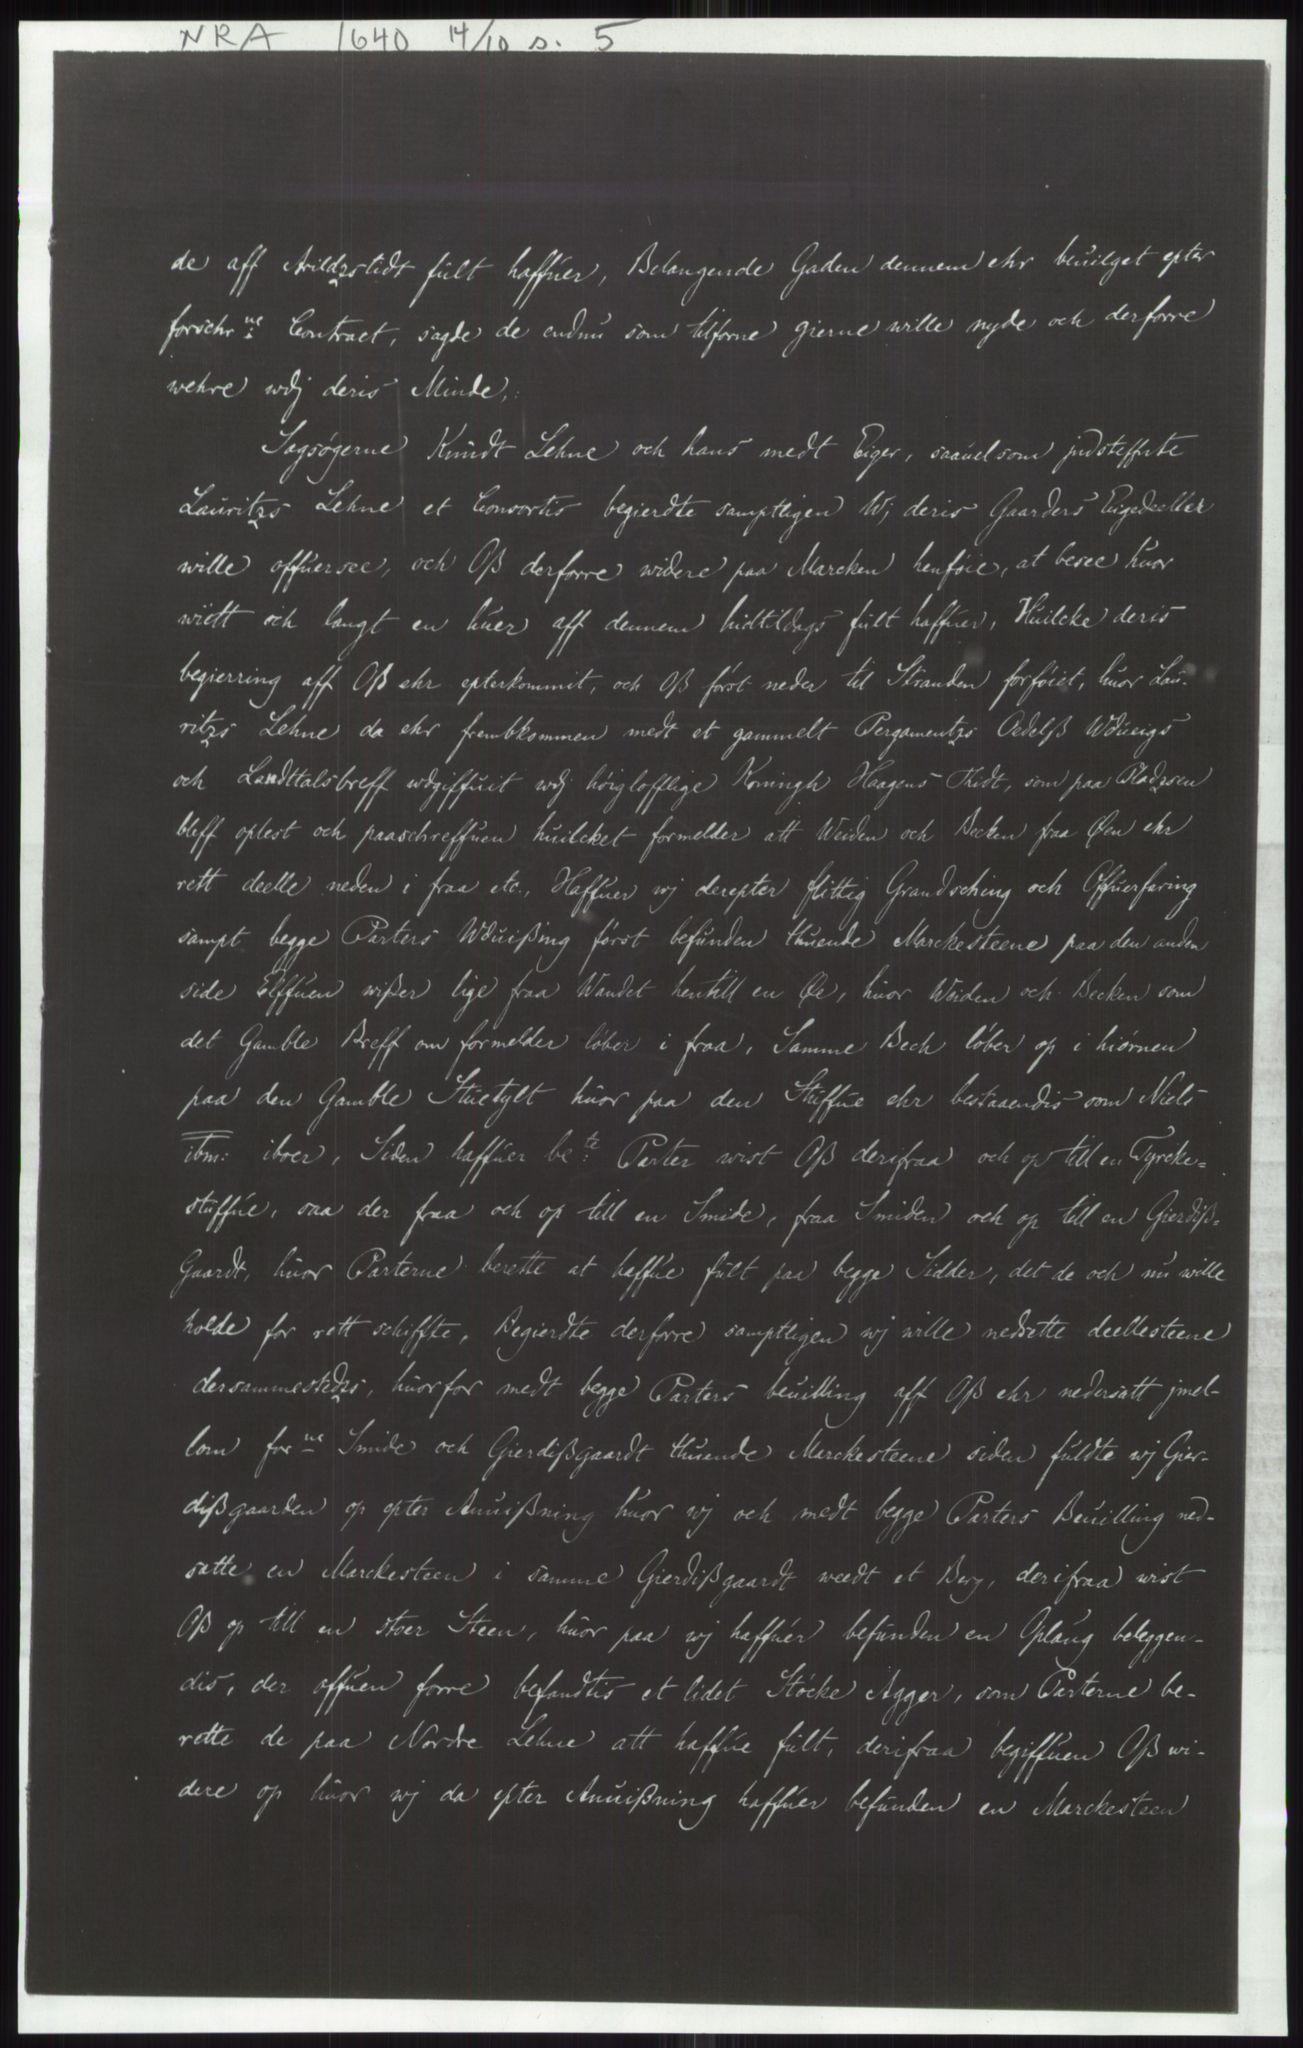 NRA 1640 14/10 s. 5
de aff Arildzstidt fult haffuer, Belangende Gaden dennem ehr beuilget epter
forschr:ne Contract, sagde de endnu som tilforne gierne wille nyde och derforre
wehre wdj deris Minde,
Sagsøgerne Knudt Lehne och hans medt Eiger, saauelsom jndsteffnte
Lauritzs Lehne et Consortis begierdte samptligen Wj deris Gaarders Eigedeeller
wille offuersee, och Oß derforre widere paa Marcken henføie, at besee huor
wiett och langt en huer aff dennem hidtildags fult haffuer, Huilcke deris
begierring aff Oß ehr epterkommit, och Oß først neder til Stranden forføiet, huor Lau-
ritzs Lehne da ehr frembkommen medt et gammelt Pergamentzs Oedelß Wduisigs
och Landttalsbreff wdgiffuit wdj høiglofflige Koningh Haagens Thidt, som paa Pladzsen
bleff oplest och paaschreffuen huilcket formelder att Weiden och Becken fraa Øen ehr
rett deelle neden i fraa etc., Haffuer wj derepter flittig Grandsching och Offuerfaring
sampt begge Parters Wduißing først befunden thuende Marckesteene paa den anden
side Elffuen wißer lige fraa Wandet hentill en Øe, huor Weiden och Becken som
det Gamble Breff om formelder løber i fraa, Samme Bech løber op i hiørnen
paa den Gamble Stuetylt huor paa den Stuffue ehr bestaaendis som Niels
ibm: iboer, Siden haffuer be:te Parter wist Oß derifraa och op till en Tyrcke-
stuffue, saa der fraa och op till en Smide, fraa Smiden och op till en Gierdiß-
Gaardt, huor Parterne berette at haffue fult paa begge Sidder, det de och nu wille
holde for rett schiffte, Begierdte derforre samptligen wj wille nedsette deellesteene
dersammestedzs, huorfor medt begge Parters beuilling aff Oß ehr nedersatt jmel-
lom forne Smide och Gierdißgaardt thuende Marckesteene siden fuldte wj Gier-
dißgaarden op epter Anuißning huor wj och medt begge Parters Beuilling ned-
satte en Marckesteen i samme Gierdißgaardt weedt et Berg, derifraa wist
Oß op till en stoer Steen, huor paa wj haffuer befunden en Oplaug beleggen-
dis, der offuen forre befandtis et lidet Støcke Agger, som Parterne be-
rette de paa Nordre Lehne att haffue fult, derifraa begiffuen Oß wi-
dere op huor wj da epter Anuißning haffuer befunden en Marckesteen